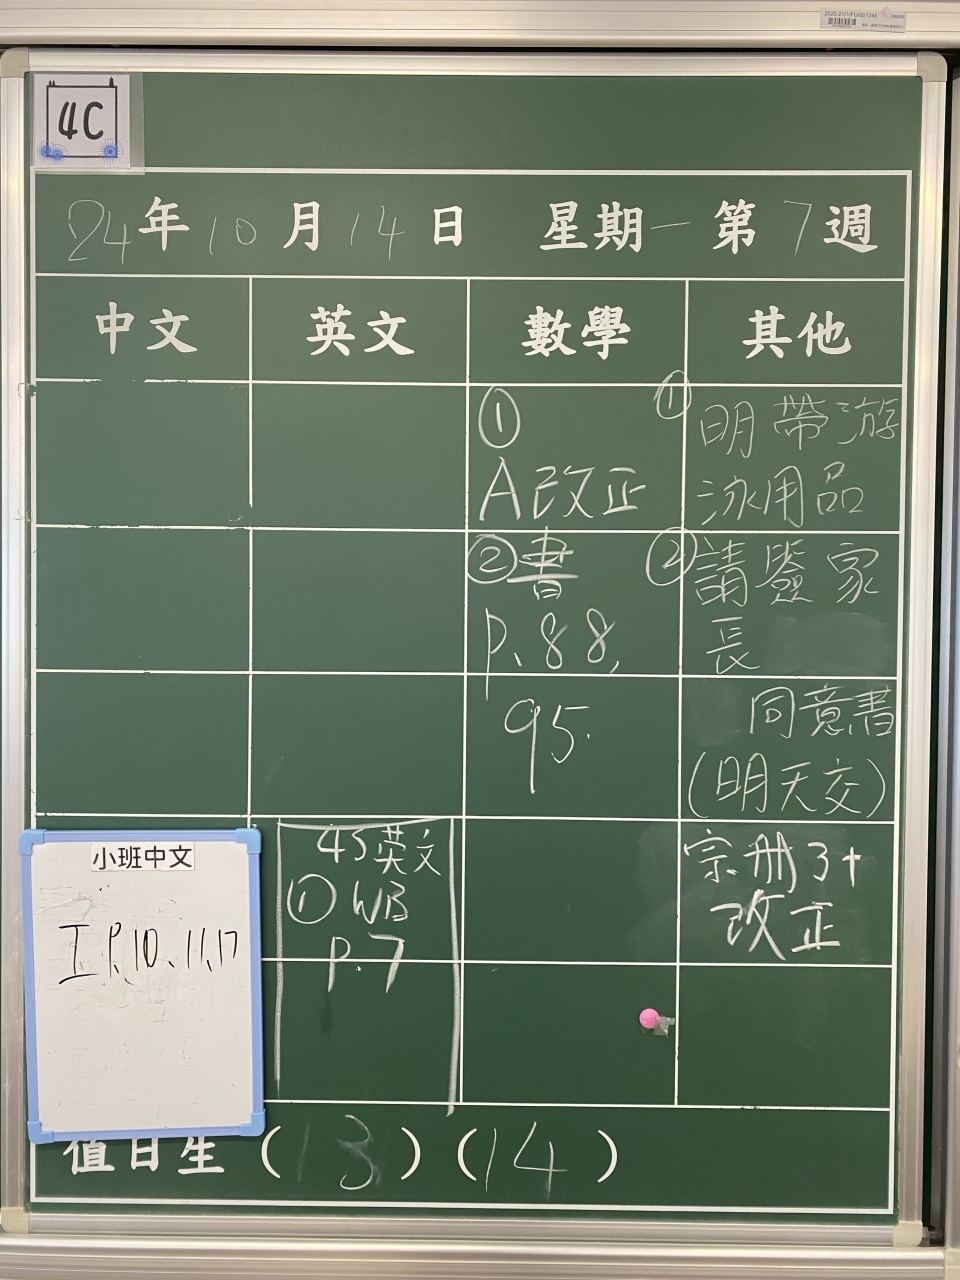 2020-21/1/FU/001345
4C
24年10月14日 星期一 第7週
中文 英文 數學 其他
①
A改正
②書
P.88,
95.
①明帶游
泳用品
②請簽家
長
同意書
(明天交)
宗册3+
改正
4S英文
① WB
P.7
小班中文
工 P.10、11、17
值日生 (13) (14)